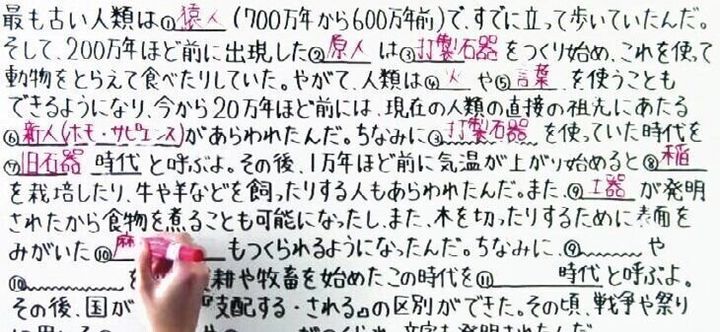 最も古い人類は①猿人(700万年から600万年前)で、すでに立って歩いていたんだ。
そして、200万年ほど前に出現した②原人は③打製石器をつくり始め、これを使って
動物をとらえて食べたりしていた。やがて、人類は④火や⑤言葉を使うことも
できるようになり、今から20万年ほど前には、現在の人類の直接の祖先にあたる
⑥新人(ホモ・サピエンス)があらわれたんだ。ちなみに③打製石器を使っていた時代を
⑦旧石器時代と呼ぶよ。その後、1万年ほど前に気温が上がり始めると⑧稲
を栽培したり、牛や羊などを飼ったりする人もあらわれたんだ。また、⑨土器が発明
されたから食物を煮ることも可能になったし、また、木を切ったりするために表面を
みがいた⑩麻 もつくられるようになったんだ。ちなみに、⑨ や
⑩ を 耕や牧畜を始めたこの時代を⑪ 時代と呼ぶよ。
その後、国が 『支配する・される』の区別ができた。その頃、戦争や祭り